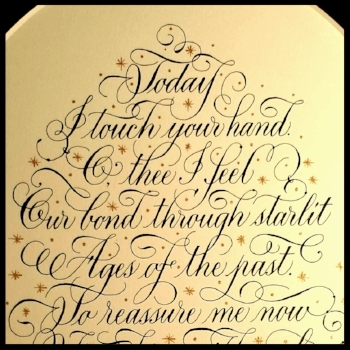 Today
I touch your hand.
O, thee I feel
Our bond through starlit
Ages of the past.
To reassure me now